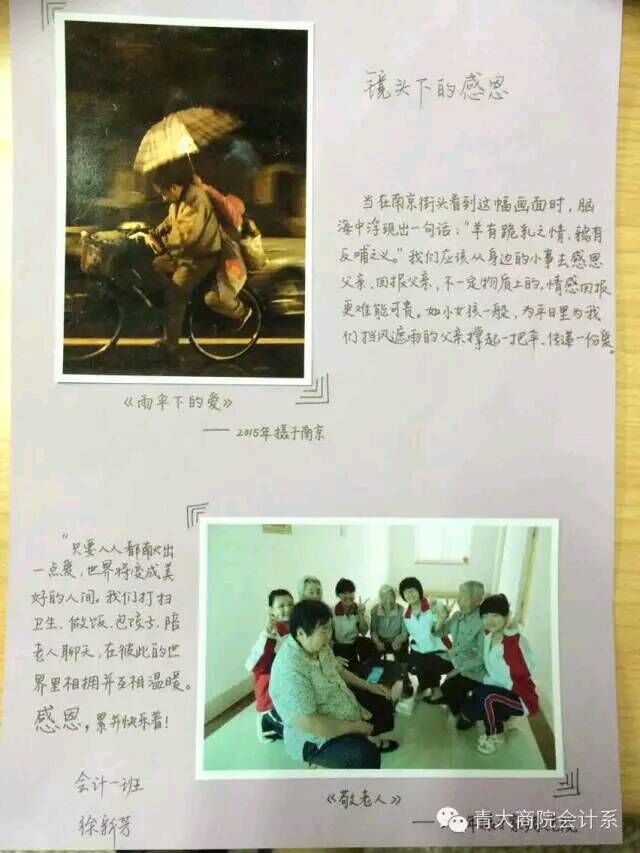 镜头下的感恩
当在南京街头看到这幅画面时，脑
海中浮现出一句话："羊有跪乳之情，鸦有
反哺之义。"我们应该从身边的小事去感恩
父亲、回报父亲，不一定物质上的，情感回报
更难能可贵。如小女孩一般，为平日里为我
们挡风遮雨的父亲撑起一把伞、传递一份爱。
《雨伞下的爱》
—— 2015年摄于南京
"只要人人都献出
一点爱，世界将变成美
好的人间。我们打扫
卫生、做饭、包饺子、陪
老人聊天，在彼此的世
界里相拥并互相温暖。
感恩，累并快乐着！
会计一班
《敬老人》
青大商院会计系